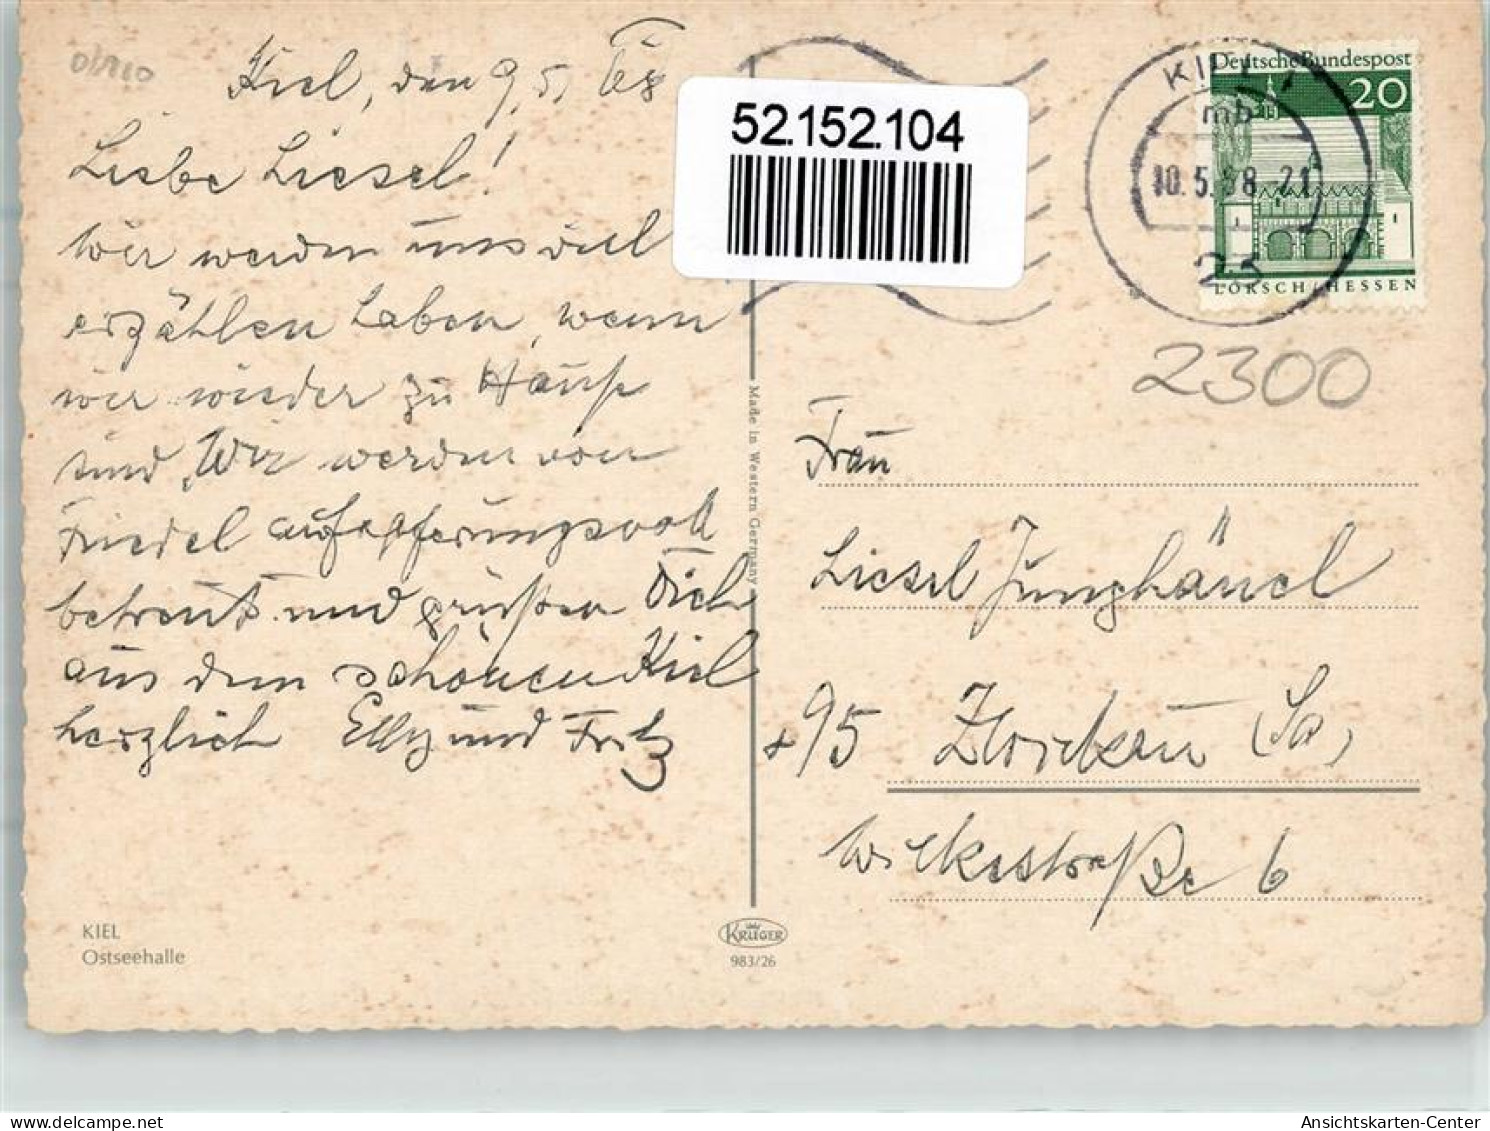 Kiel, den 9.5. 68
Liebe Liesel!
Wir werden uns viel
erzählen haben, wenn
wir wieder zu Hause
sind. Wir werden von
Friedel aufopferungsvoll
betreut und grüßen Dich
aus dem schönen Kiel
herzlich Elly und Fritz
KIEL
Ostseehalle
Made in Western Germany
KRÜGER
983/26
52.152.104
Deutsche Bundespost
20
LORSCH/HESSEN
KIEL 1
mb
10.5.68.21
23
2300
Frau
Liesel Junghänel
x 95 Zwickau (Sa)
Wilkestraße 6
Ansichtskarten-Center